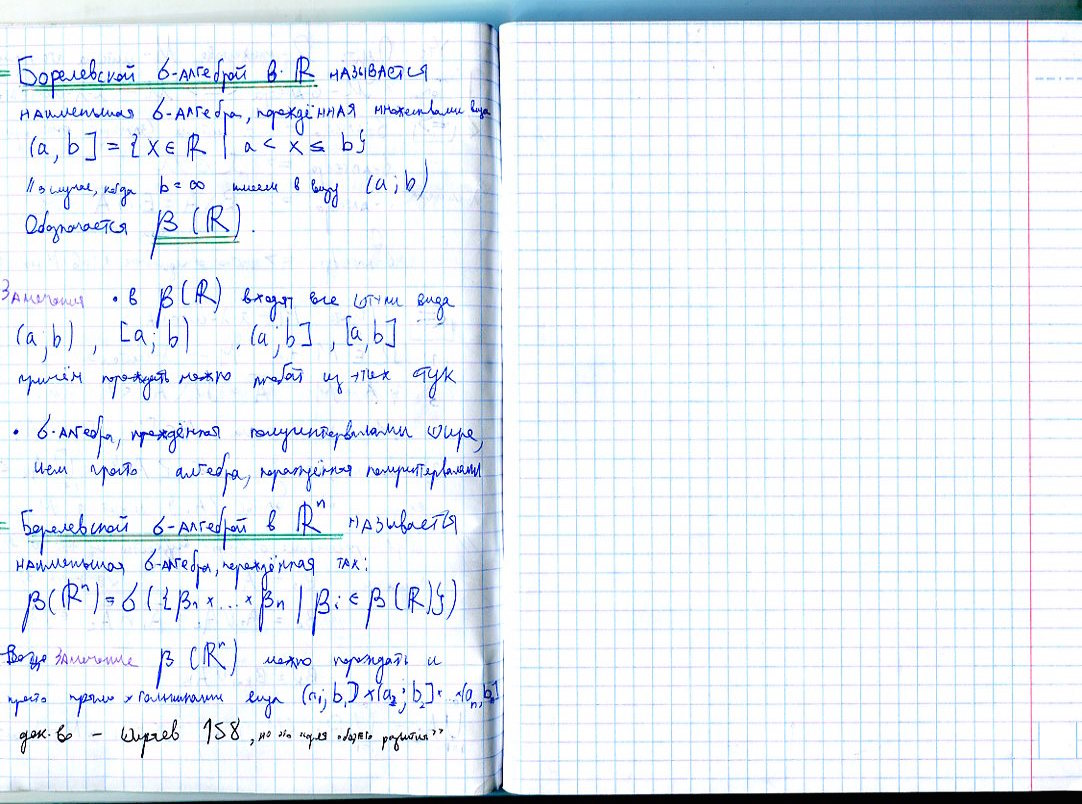 = Борелевской σ-алгеброй в ℝ называется
наименьшая σ-алгебра, порождённая множествами вида
(a, b] = {x ∈ ℝ | a < x ≤ b}
// в случае, когда b = ∞ имеем в виду (a; b)
Обозначается β(ℝ).
Замечания • в β(ℝ) входят все штуки вида
(a; b), [a; b), (a; b], [a, b]
причём порождать можно любой из этих штук
• σ-алгебра, порождённая полуинтервалами шире,
чем просто алгебра, порождённая полуинтервалами
= Борелевской σ-алгеброй в ℝⁿ называется
наименьшая σ-алгебра, порождённая так:
β(ℝⁿ) = σ({β₁ × ... × βn | βi ∈ β(ℝ)})
Замечание β(ℝⁿ) можно порождать и
просто прямоугольниками вида (a₁; b₁] × (a₂; b₂] × ... × (an, bn]
док-во – Ширяев 158, но это "для общего развития"